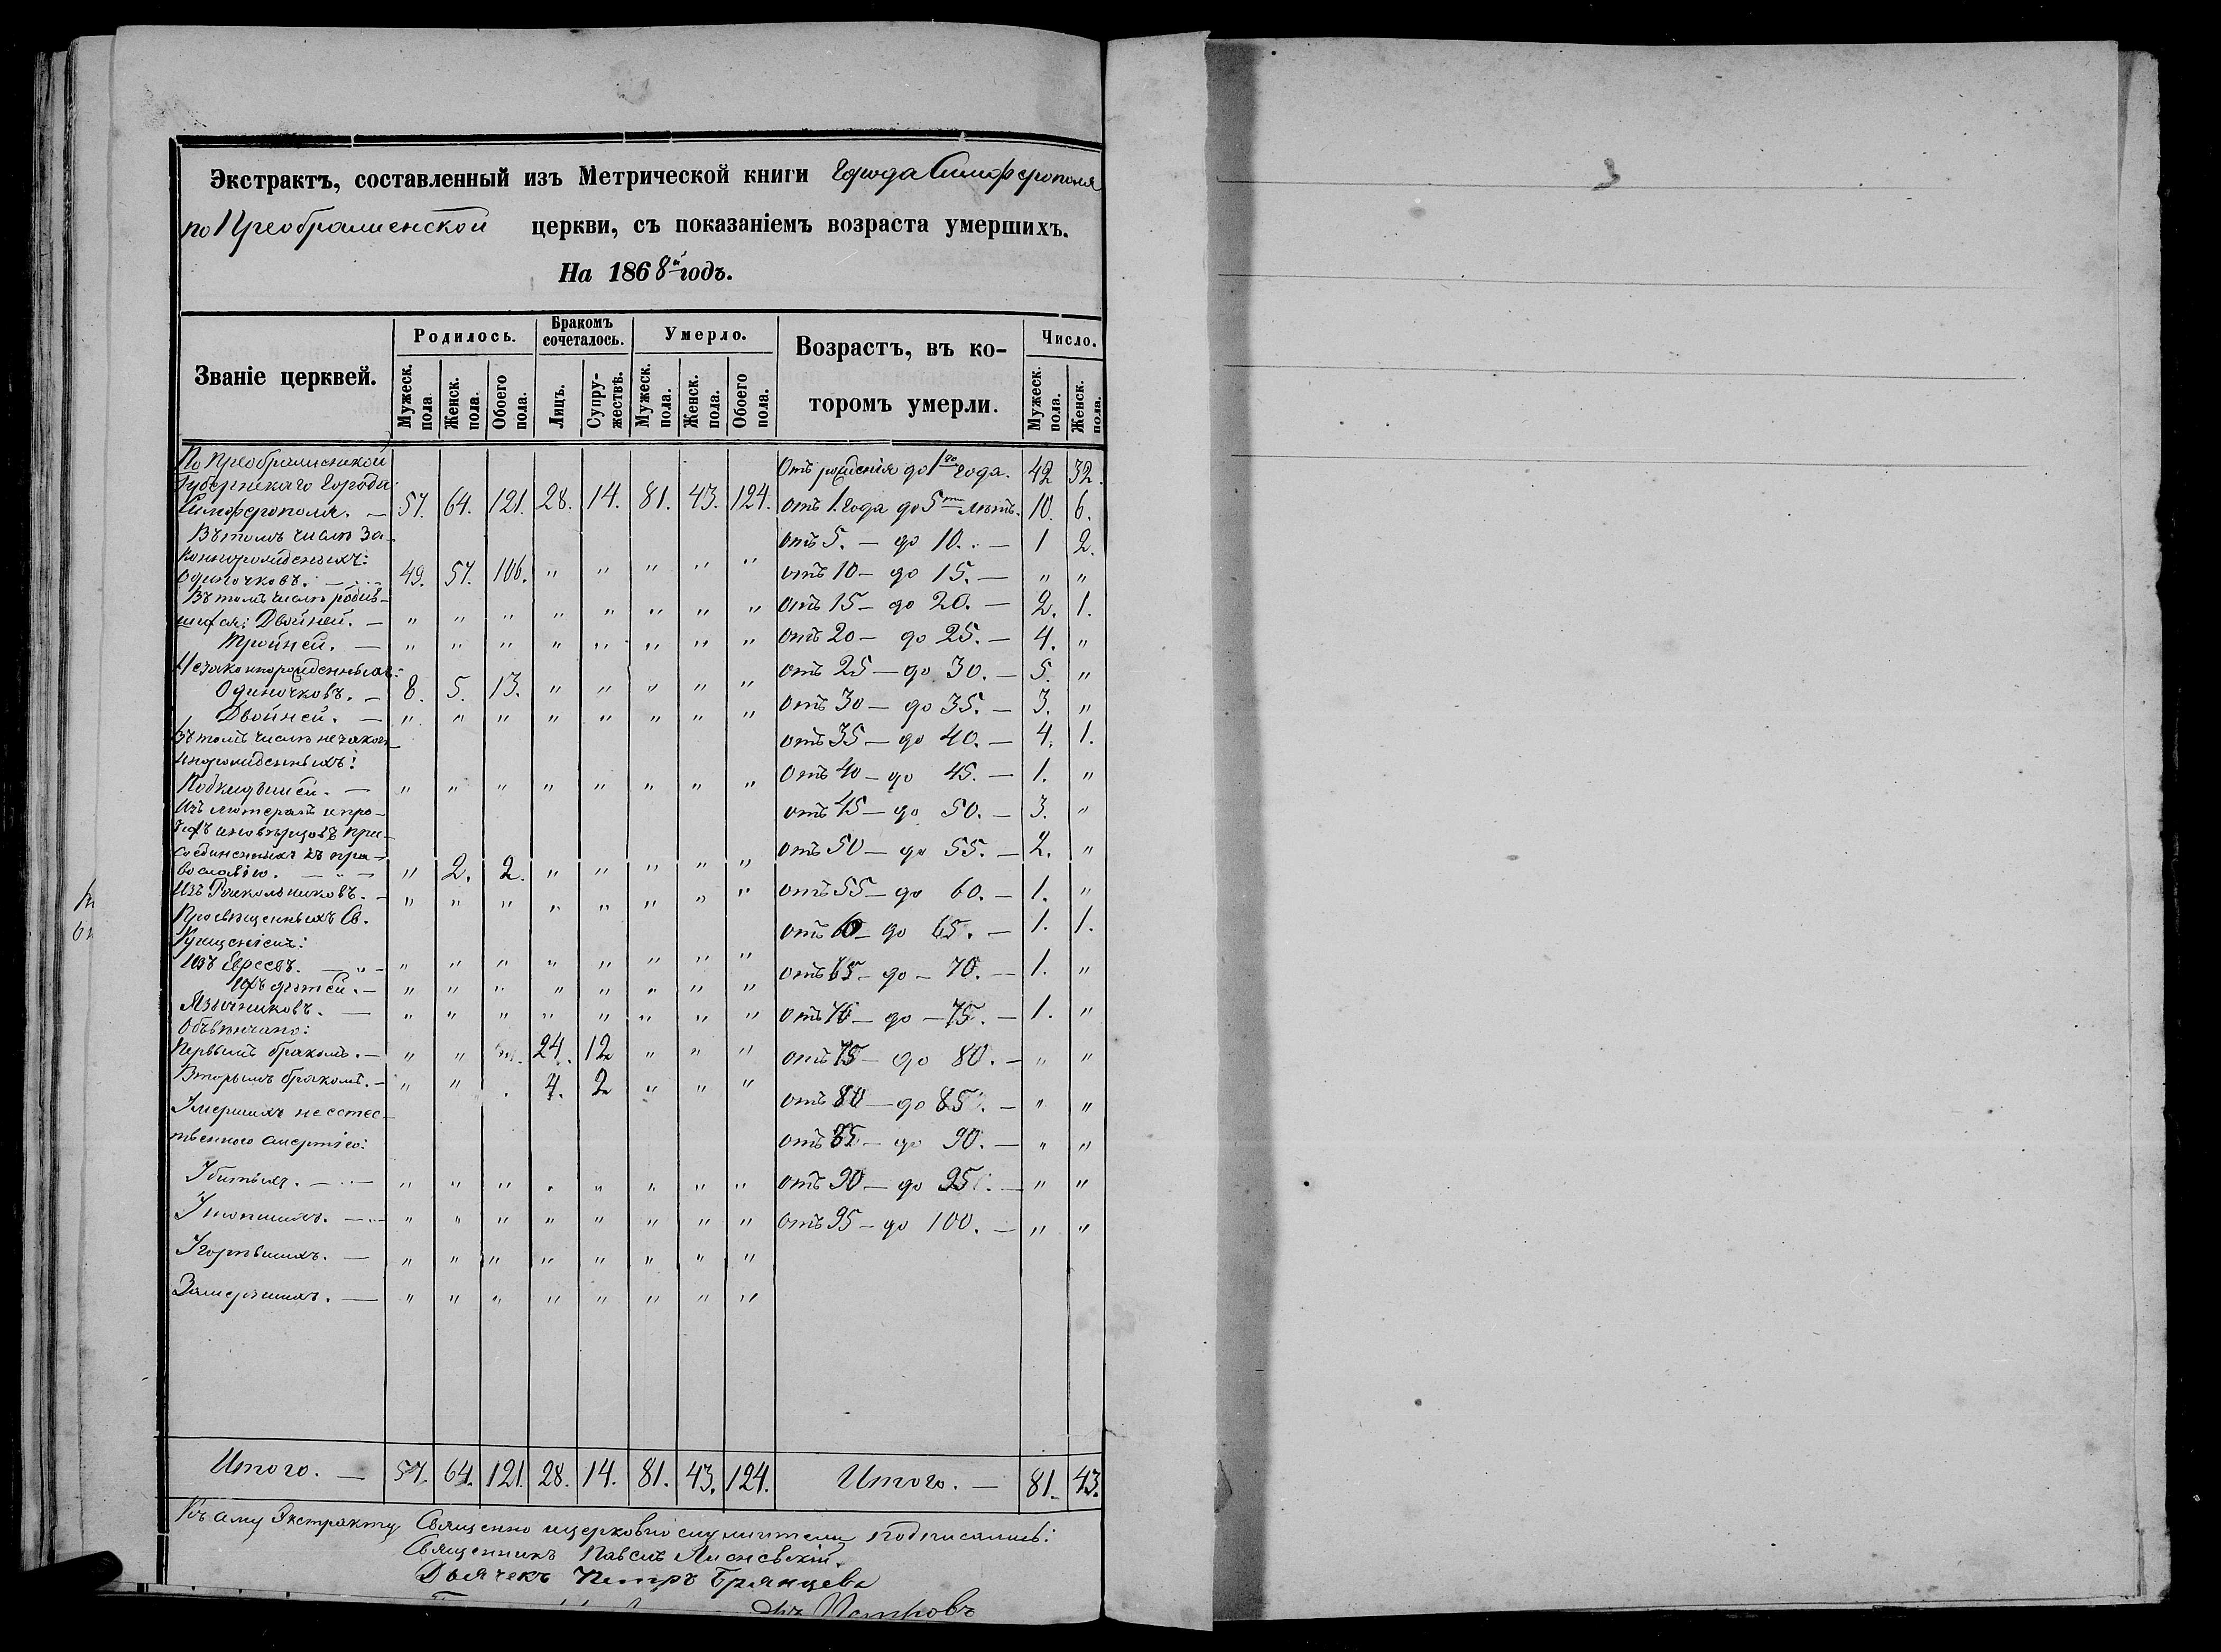 Экстрактъ, составленный изъ Метрической книги Города Симферополя
по Преображенской церкви, съ показаніемъ возраста умершихъ.
На 1868й годъ.
Званіе церквей. Родилось. Бракомъ сочеталось. Умерло. Возрастъ, въ которомъ умерли. Число.
Мужеск. пола. Женск. пола. Обоего пола. Лицъ. Супружествъ. Мужеск. пола. Женск. пола. Обоего пола. Мужеск. пола. Женск. пола.
По Преображенской
Губернскаго Города
Симферополя. — 57. 64. 121. 28. 14. 81. 43. 124.
Въ томъ числѣ за-
коннорожденныхъ:
Одиночковъ. — 49. 57. 106. " " " " "
Въ томъ числѣ родив-
шихся: Двойней. — " " " " " " " "
Тройней. — " " " " " " " "
Незаконнорожденныхъ:
Одиночковъ. — 8. 5. 13. " " " " "
Двойней. — " " " " " " " "
Въ томъ числѣ незакон-
норожденныхъ:
Подкидышей. — " " " " " " " "
Изъ лютеранъ и про-
чихъ иновѣрцовъ при-
соединенныхъ къ пра-
вославію. — " 2. 2. " " " " "
Изъ Раскольниковъ. — " " " " " " " "
Просвѣщенныхъ Св.
Крещеніемъ:
Изъ Евреевъ. — " " " " " " " "
Ихъ дѣтей. — " " " " " " " "
Язычниковъ. — " " " " " " " "
Объвѣнчано:
Первымъ бракомъ. — " " 24. 12 " " "
Вторымъ бракомъ. — " " 4. 2 " " "
Умершихъ неестес-
твенною смертію:
Убитыхъ. — " " " " " " " "
Утопшихъ. — " " " " " " " "
Угорѣвшихъ. — " " " " " " " "
Замерзшихъ. — " " " " " " " "
Отъ рожденія до 1го года. 42 32.
Отъ 1. года до 5ти лѣтъ. 10. 6.
отъ 5. — до 10. — 1 2.
отъ 10 — до 15. — " "
отъ 15 — до 20. — 2. 1.
отъ 20 — до 25. — 4. "
отъ 25 — до 30. — 5. "
отъ 30 — до 35. — 3. "
отъ 35 — до 40. — 4. 1.
отъ 40 — до 45. — 1. "
отъ 45 — до 50. — 3. "
отъ 50 — до 55. — 2. "
отъ 55 — до 60. — 1. "
отъ 60 — до 65. — 1. 1.
отъ 65 — до — 70. — 1. "
отъ 70 — до — 75. — 1. "
отъ 75 — до 80. — " "
отъ 80 — до 85. — " "
отъ 85 — до 90. — " "
отъ 90 — до 95. — " "
отъ 95 — до 100. — " "
Итого. — 57. 64. 121. 28. 14. 81. 43. 124. Итого. — 81. 43.
Къ ему Экстракту Священно и церковно служители подписались:
Священникъ Павелъ
Дьячекъ Петръ Брянцевъ
Петровъ